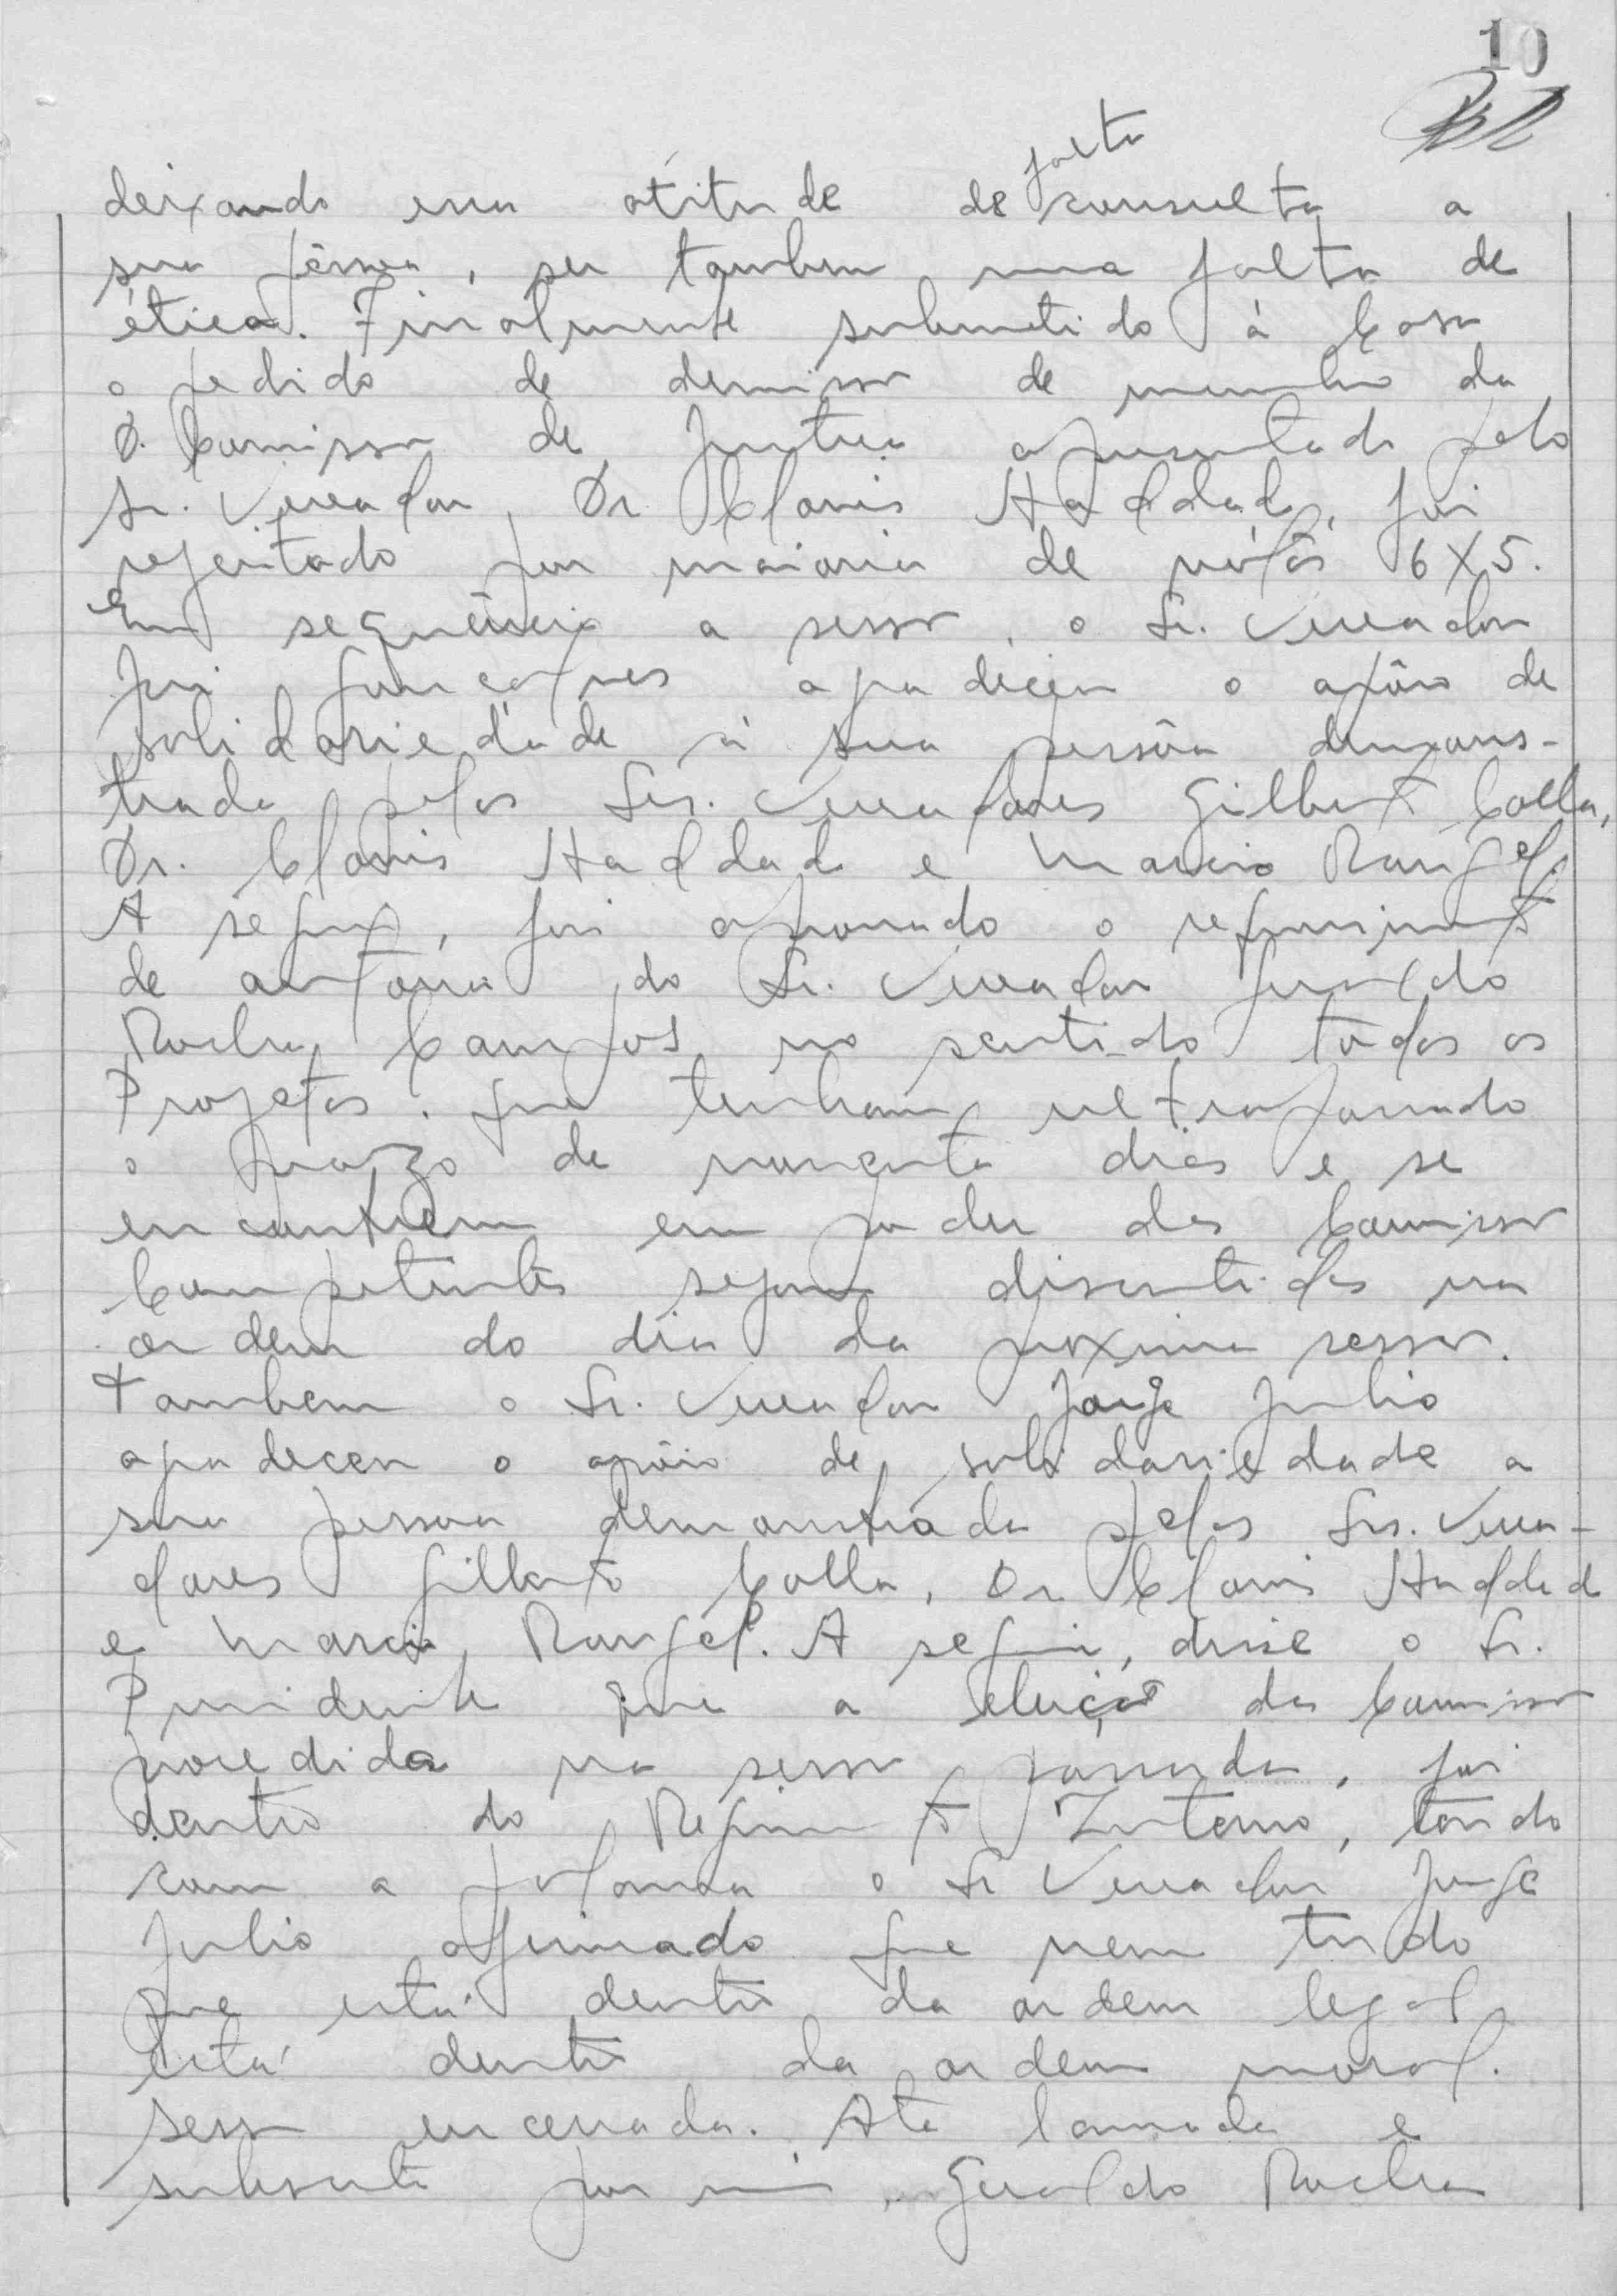 10
falta
deixando essa atitude de consulta a
sua pessoa, ser tambem uma falta de
ética. Finalmente submetido á Casa
o pedido de demissão de membro da
D. Comissão de Justiça apresentado pelo
Sr. Vereador Dr Clovis Haddad, foi
rejeitado por maioria de votos 6X5.
Em sequência a sessão, o Sr. Vereador
Gonçalves agradeceu o apôio de
solidariedade á sua pessôa demons-
trada pelos Srs. Vereadores Gilberto Colla,
Dr. Clovis Haddad e Marcio Rangel.
A seguir, foi aprovado o requerimento
de autoria do Sr. Vereador Geraldo
Rocha Campos no sentido todos os
Projetos que tenham ultrapassado
o prazo de noventa dias e se
encontrem em poder das Comissão
Competentes sejam discutidos na
ordem do dia da proxima sessão.
Tambem o Sr. Vereador Jorge Julio
agradeceu o apôio de solidariedade a
sua pessoa demonstrada pelos Srs. Verea-
dores Gilberto Colla, Dr Clovis Haddad
e Marcio Rangel. A seguir, disse o Sr.
Presidente que a eleição das Comissão
procedida na sessão passada, foi
dentro do Regimento Interno, tendo
com a palavra o Sr Vereador Jorge
Julio afirmado que nem tudo
que está dentro da ordem legal
está dentro da ordem moral.
Sessão encerrada. Ata lavrada e
subscrita por mim Geraldo Rocha